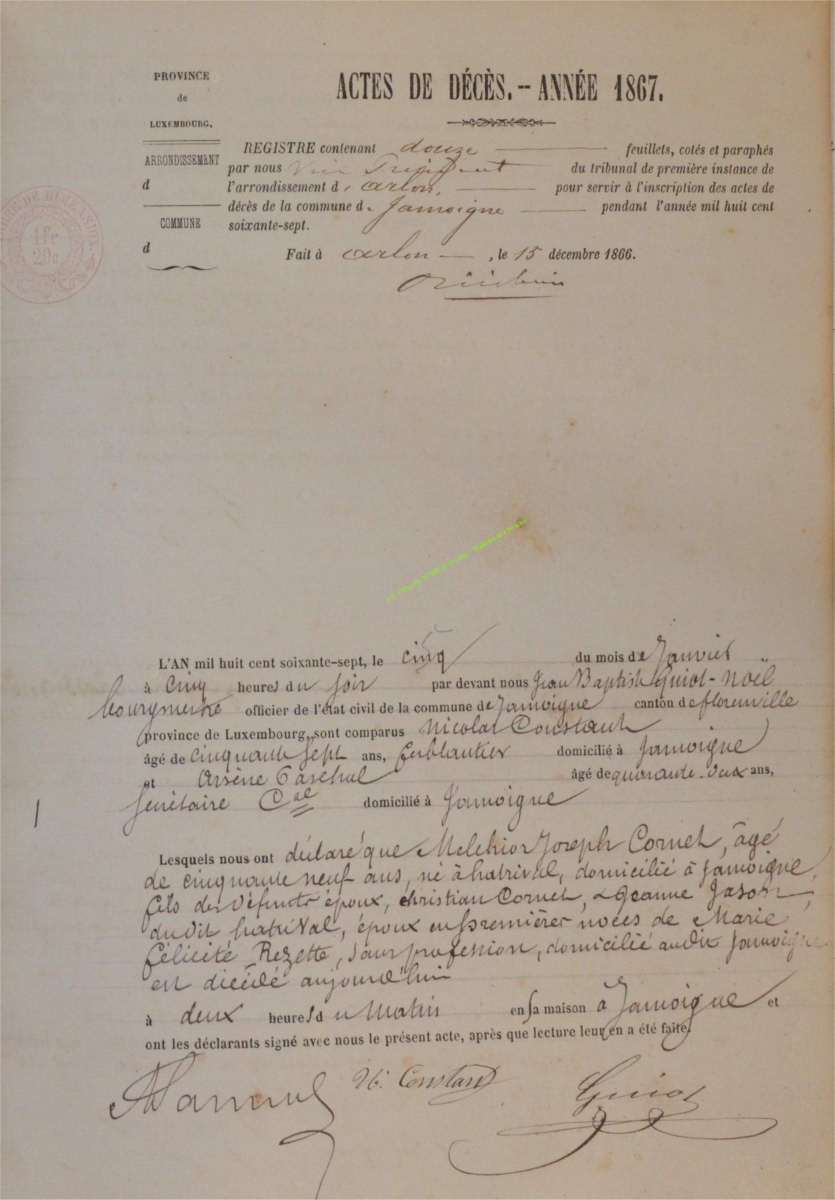 PROVINCE
de
LUXEMBOURG.
ARRONDISSEMENT
d
COMMUNE
d
ACTES DE DÉCÈS. - ANNÉE 1867.
REGISTRE contenant douze feuillets, cotés et paraphés
par nous Vice Président du tribunal de première instance de
l'arrondissement d'arlon. pour servir à l'inscription des actes de
décès de la commune de Jamoigne pendant l'année mil huit cent
soixante-sept.
Fait à arlon, le 15 décembre 1866.
L'AN mil huit cent soixante-sept, le cinq du mois de Janvier
à cinq heures du soir par devant nous Jean Baptiste Guiot-Noël
bourgmestre officier de l'état civil de la commune de Jamoigne canton de florenville
province de Luxembourg, sont comparus Nicolas Constant
âgé de cinquante sept ans, ferblantier domicilié à Jamoigne
et Arsène âgé de quarante-deux ans,
Secrétaire Cal domicilié à Jamoigne
Lesquels nous ont déclaré que Melchior Joseph Cornet, âgé
de cinquante neuf ans, né à hatrival, domicilié à Jamoigne,
fils des défunts époux, Christian Cornet, & Jeanne Jason,
du dit hatrival, époux en premières noces de Marie
félicité Rezette, sans profession, domicilié au dit Jamoigne
est décédé aujourd'hui
à deux heures du matin en sa maison à Jamoigne et
ont les déclarants signé avec nous le présent acte, après que lecture leur en a été faite.
N. Constant
Guiot